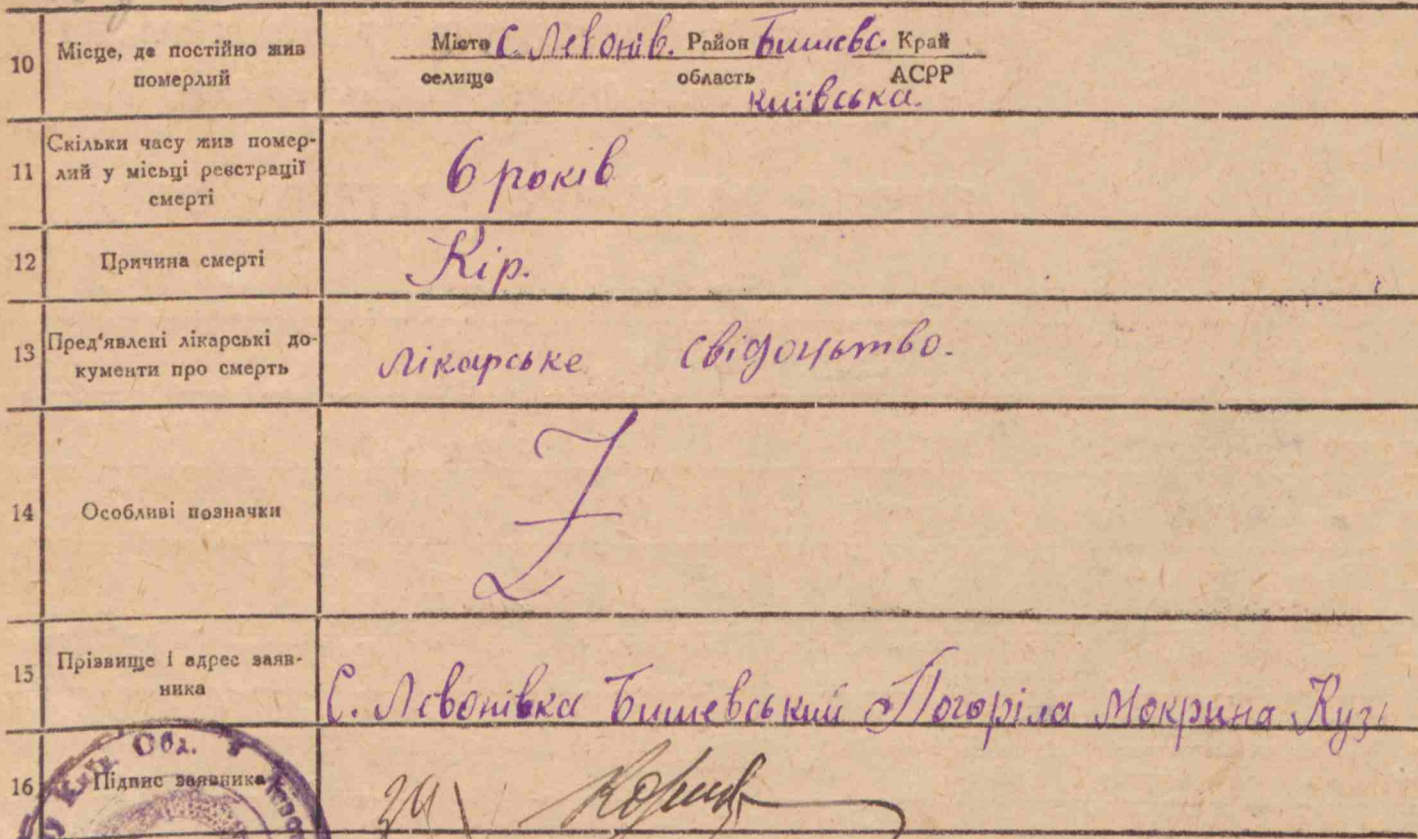 10 Місце, де постійно жив померлий
Місто С. Левонів. Район Бишевс. Край
селище область АСРР
Київська.
11 Скільки часу жив помер-
лий у місьці реєстрації
смерті
6 років
12 Причина смерті Кір.
13 Пред'явлені лікарські до-
кументи про смерть
Лікарське свідоцьтво.
14 Особливі позначки
Z
15 Прізвище і адрес заяв-
ника
С. Лєвонівка Бишевський Погоріла Мокрина Кузь
Обл.
16 Підпис заявника